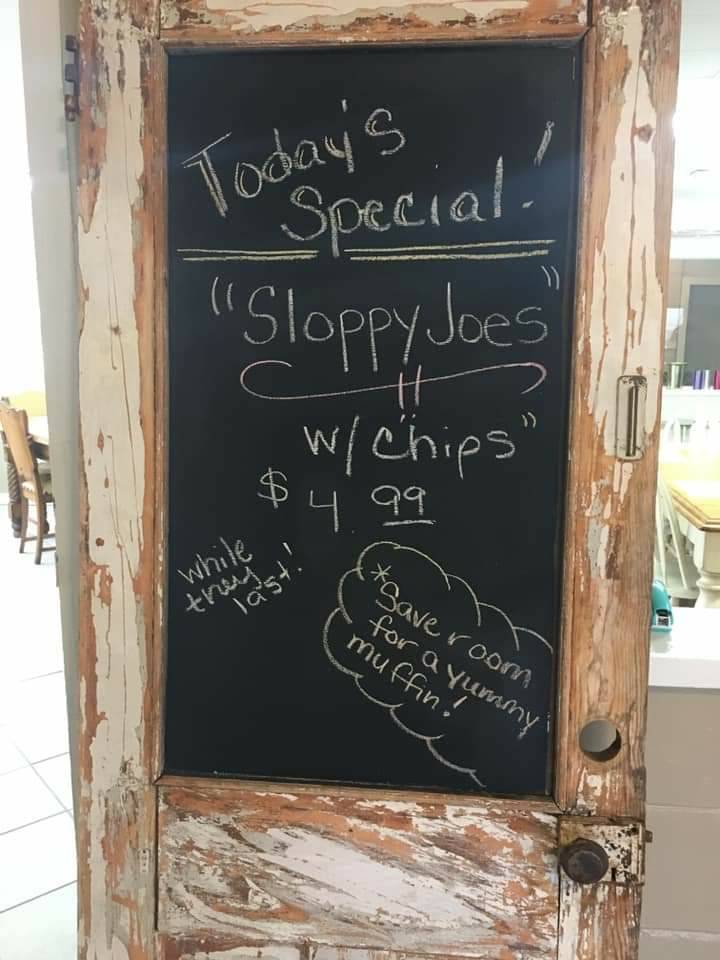 Today's
Special!
"Sloppy Joes"
w/ chips"
$4.99
while
they
last!
*Save room
for a yummy
muffin!